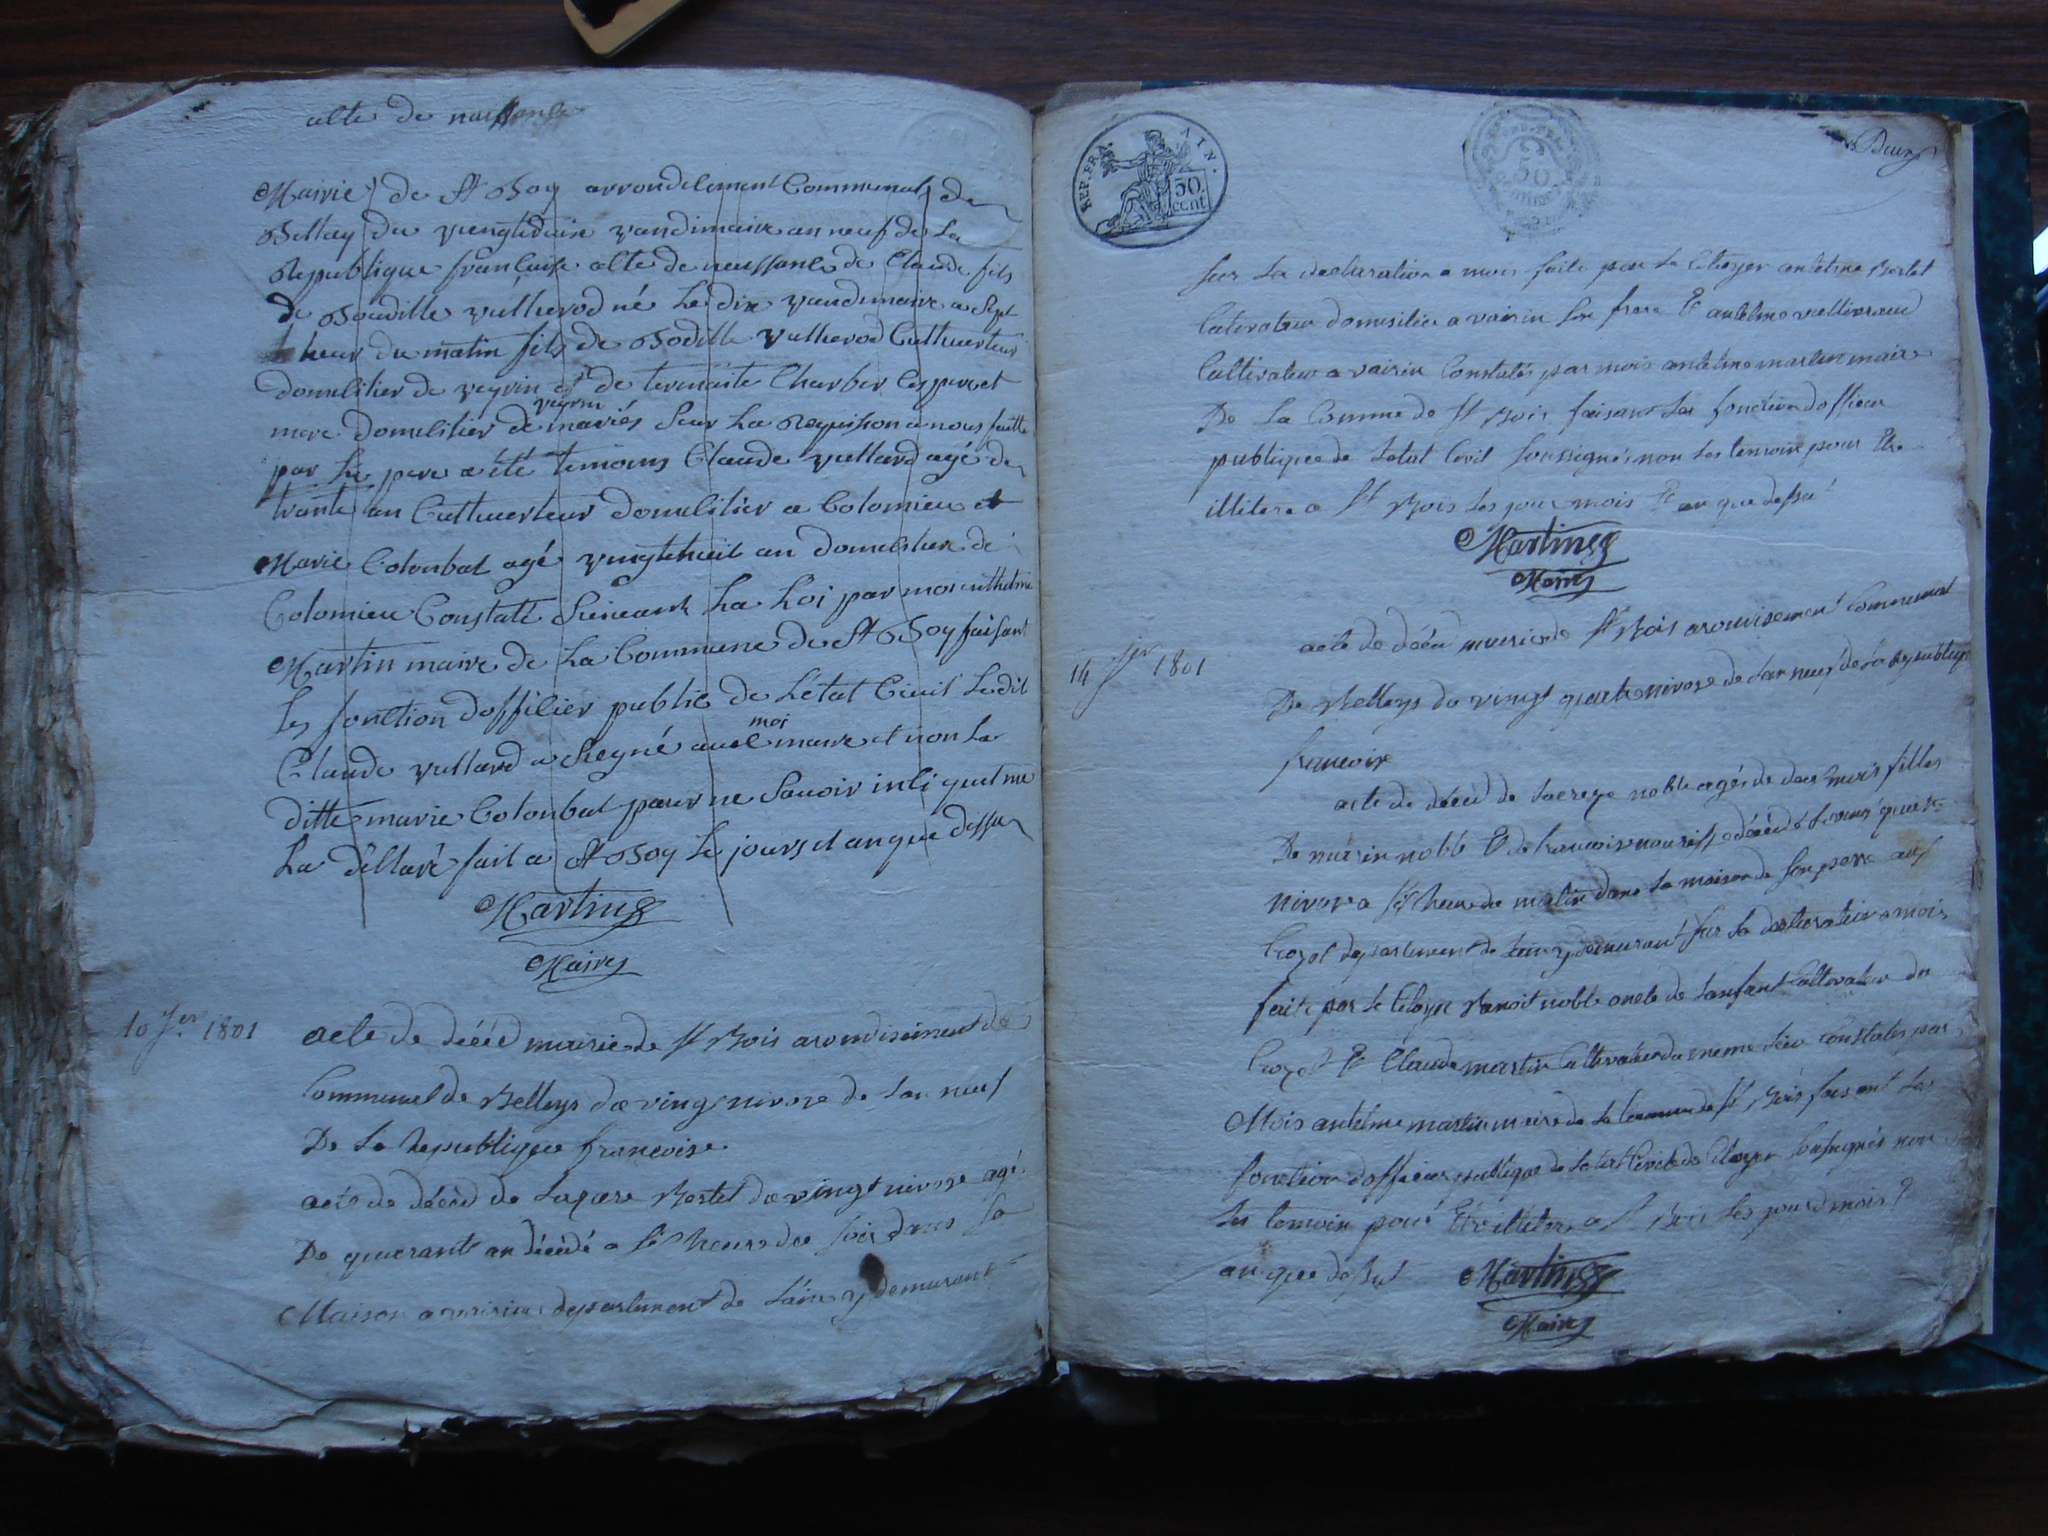 acte de naissance
Mairie de St Boy arrondicement Communal de
Bellay du vengtedeux vandimaire an neuf de La
Republique francaise acte de naissance de Claude fils
de né Le dix vandimaire a sept
heur du matin fils de Cultiverteur
domicilier de veyrin et de Charber Ces pere et
mere domicilier de veyrin mariés Seur La a nous faitte
par Le pere a été temoins Claude vullard agé de
trante an Cultiverteur domicilier a Colomieu et
Marie Colonbat agé vingtehuit an domicilier de
Colomieu Constaté La Loi par moi anthelme
Martin maire de La Commune de St Boy faisant
Les fonction d'officier public de L'état Civil Ledit
Claude vullard a Siegné avec moi maire et non La
ditte marie Colonbat pour ne Savoir
La déllaré fait a St Boy Le jours et an que dessu
Marting
Maire
10 Jer 1801
acte de décéd mairie de St Bois arondisiment de
Communel de Belleys du vingt nivose de Lan neuf
De La Republique francoise
acte de décéd de Lazare Bertet du vingt nivose agé
De quarant an décédé a heure du soir dans Sa
Maison a departement de Lain y demurant
REP. FRA. AIN.
50. cent
Deux
sur La declaration a mois faite par Le Citoyen antelme Bertet
Cultivateur domicilier a vairin Son frere Et antelme
Cultivateur a vairin Constatés par mois antelme martin maire
De La Comune de St Bois faisant Les fonction dofficier
publique de Letat Civil Soussignés non Les temoin pour Etre
illitere a St Bois Les jour mois Et an que dessu
Marting
Maire
14 Jer 1801
acte de décéd mairie de St Bois arouvisement Communal
De Belleys du vingt quatre nivose de Lan neuf de La Republique
francoise
acte de décéd de noble agés de deux mois filles
De noble Et de francoise décédé Le vingt quatre
nivose a heure du matin dans La maison de Son pere au
Crozet departement de Lain y demurant sur La declaration a mois
faite par Le Citoyen Benoit noble oncle de Lanfant Cultivateur du
Crozet Et Claude martin Cultivateur du meme Lieu Constatés par
Mois antelme martin maire de La Commune de St Bois faisant Les
fonction dofficier publique de Letat Civil Soussignés non
Les temoin pour Etre illitere a St Bois Les jour mois Et
an que dessut
Marting
Maire